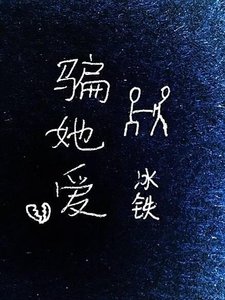 骗她爱
冰铁